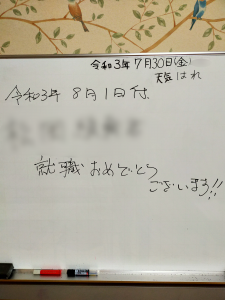 令和3年 7月30日(金)
天気 はれ
令和3年 8月1日付
就職おめでとう
ございます!!